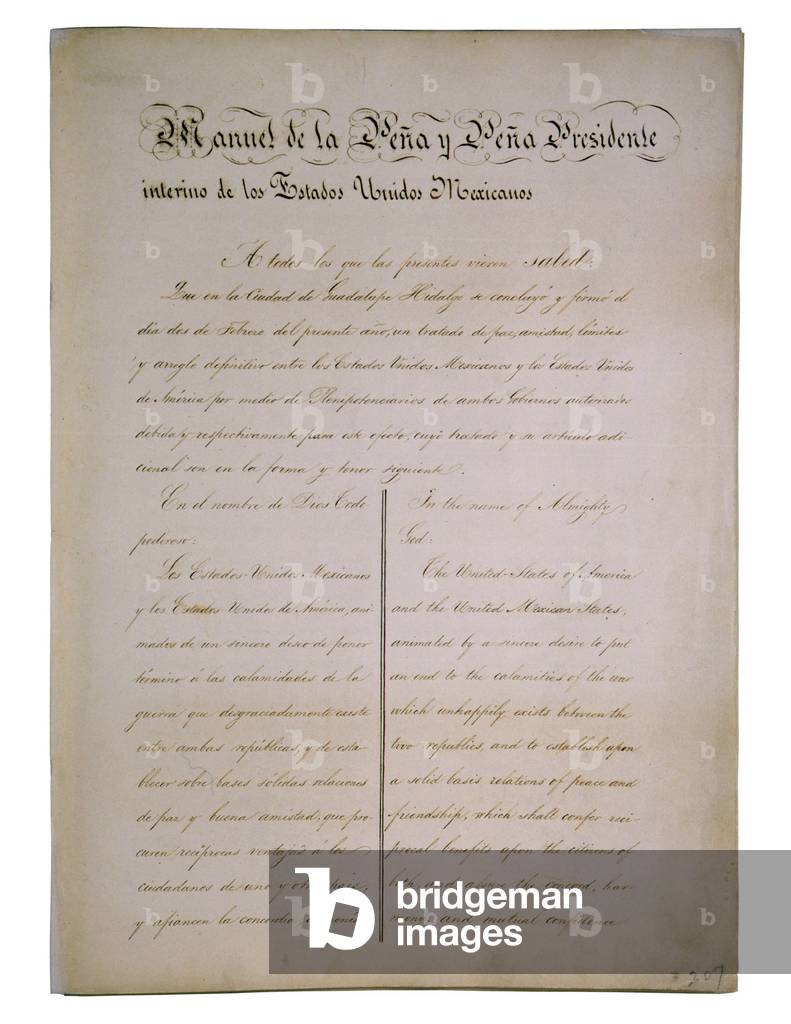 Manuel de la Peña y Peña Presidente
interino de los Estados Unidos Mexicanos
A todos los que las presentes vieren sabed:
Que en la Ciudad de Guadalupe Hidalgo se concluyó y firmó el
día dos de Febrero del presente año, un tratado de paz, amistad, límites
y arreglo definitivo entre los Estados Unidos Mexicanos y los Estados Unidos
de América por medio de Plenipotenciarios de ambos Gobiernos autorizados
debida y respectivamente para este efecto, cuyo tratado y su artículo adi-
cional son en la forma y tenor siguiente.
En el nombre de Dios Todo
poderoso:
Los Estados-Unidos Mexicanos
y los Estados-Unidos de América, ani-
mados de un sincero deseo de poner
término á las calamidades de la
guerra que desgraciadamente existe
entre ambas repúblicas, y de esta-
blecer sobre bases sólidas relaciones
de paz y buena amistad, que pro-
curen recíprocas ventajas á los
ciudadanos de uno y otro pais,
y afiancen la concordia, armonía
In the name of Almighty
God:
The United-States of America
and the United Mexican States,
animated by a sincere desire to put
an end to the calamities of the war
which unhappily exists between the
two republics, and to establish upon
a solid basis relations of peace and
friendship, which shall confer reci-
procal benefits upon the citizens of
both, and assure the concord, har-
mony and mutual confidence
b bridgeman
images
207